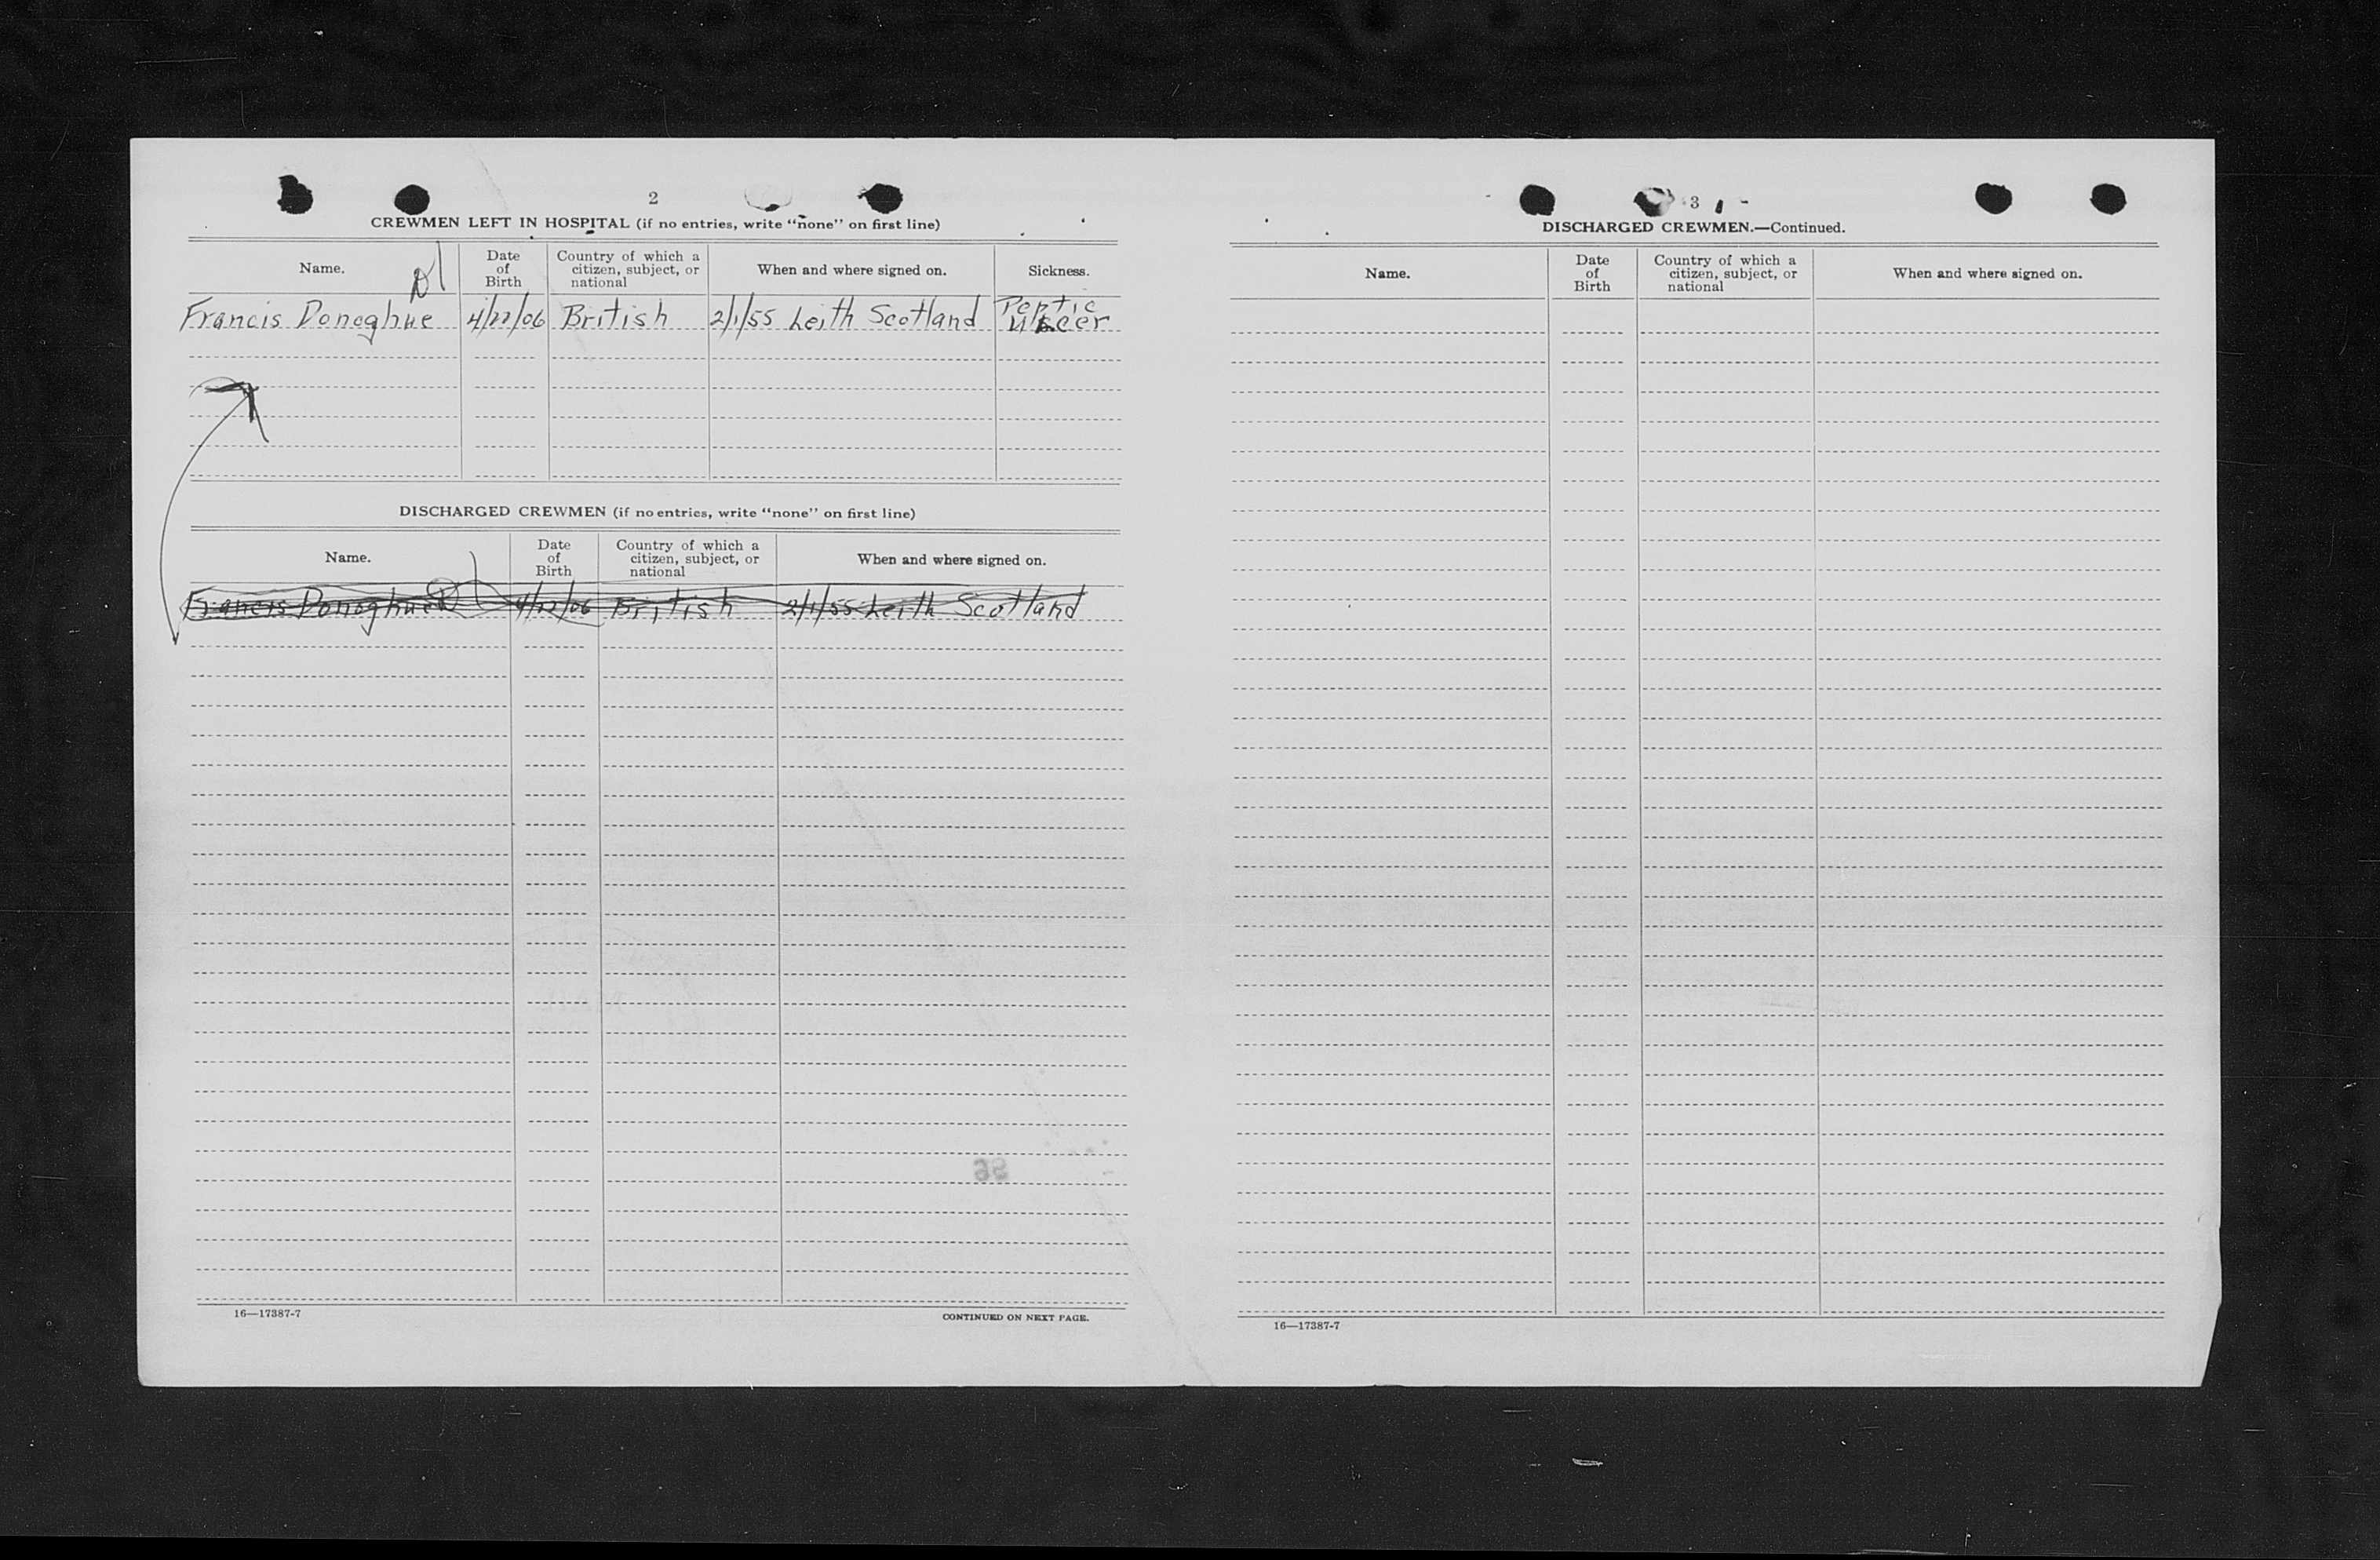 2
CREWMEN LEFT IN HOSPITAL (if no entries, write "none" on first line)
Name.
Date of Birth
Country of which a citizen, subject, or national
When and where signed on.
Sickness.
Francis Donoghue 4/22/06 British 2/1/55 Leith Scotland Peptic Ulcer
DISCHARGED CREWMEN (if no entries, write "none" on first line)
Name.
Date of Birth
Country of which a citizen, subject, or national
When and where signed on.
Francis Donoghue 4/22/06 British 2/1/55 Leith Scotland
16—17387-7
CONTINUED ON NEXT PAGE.
3
DISCHARGED CREWMEN.—Continued.
Name.
Date of Birth
Country of which a citizen, subject, or national
When and where signed on.
16—17387-7